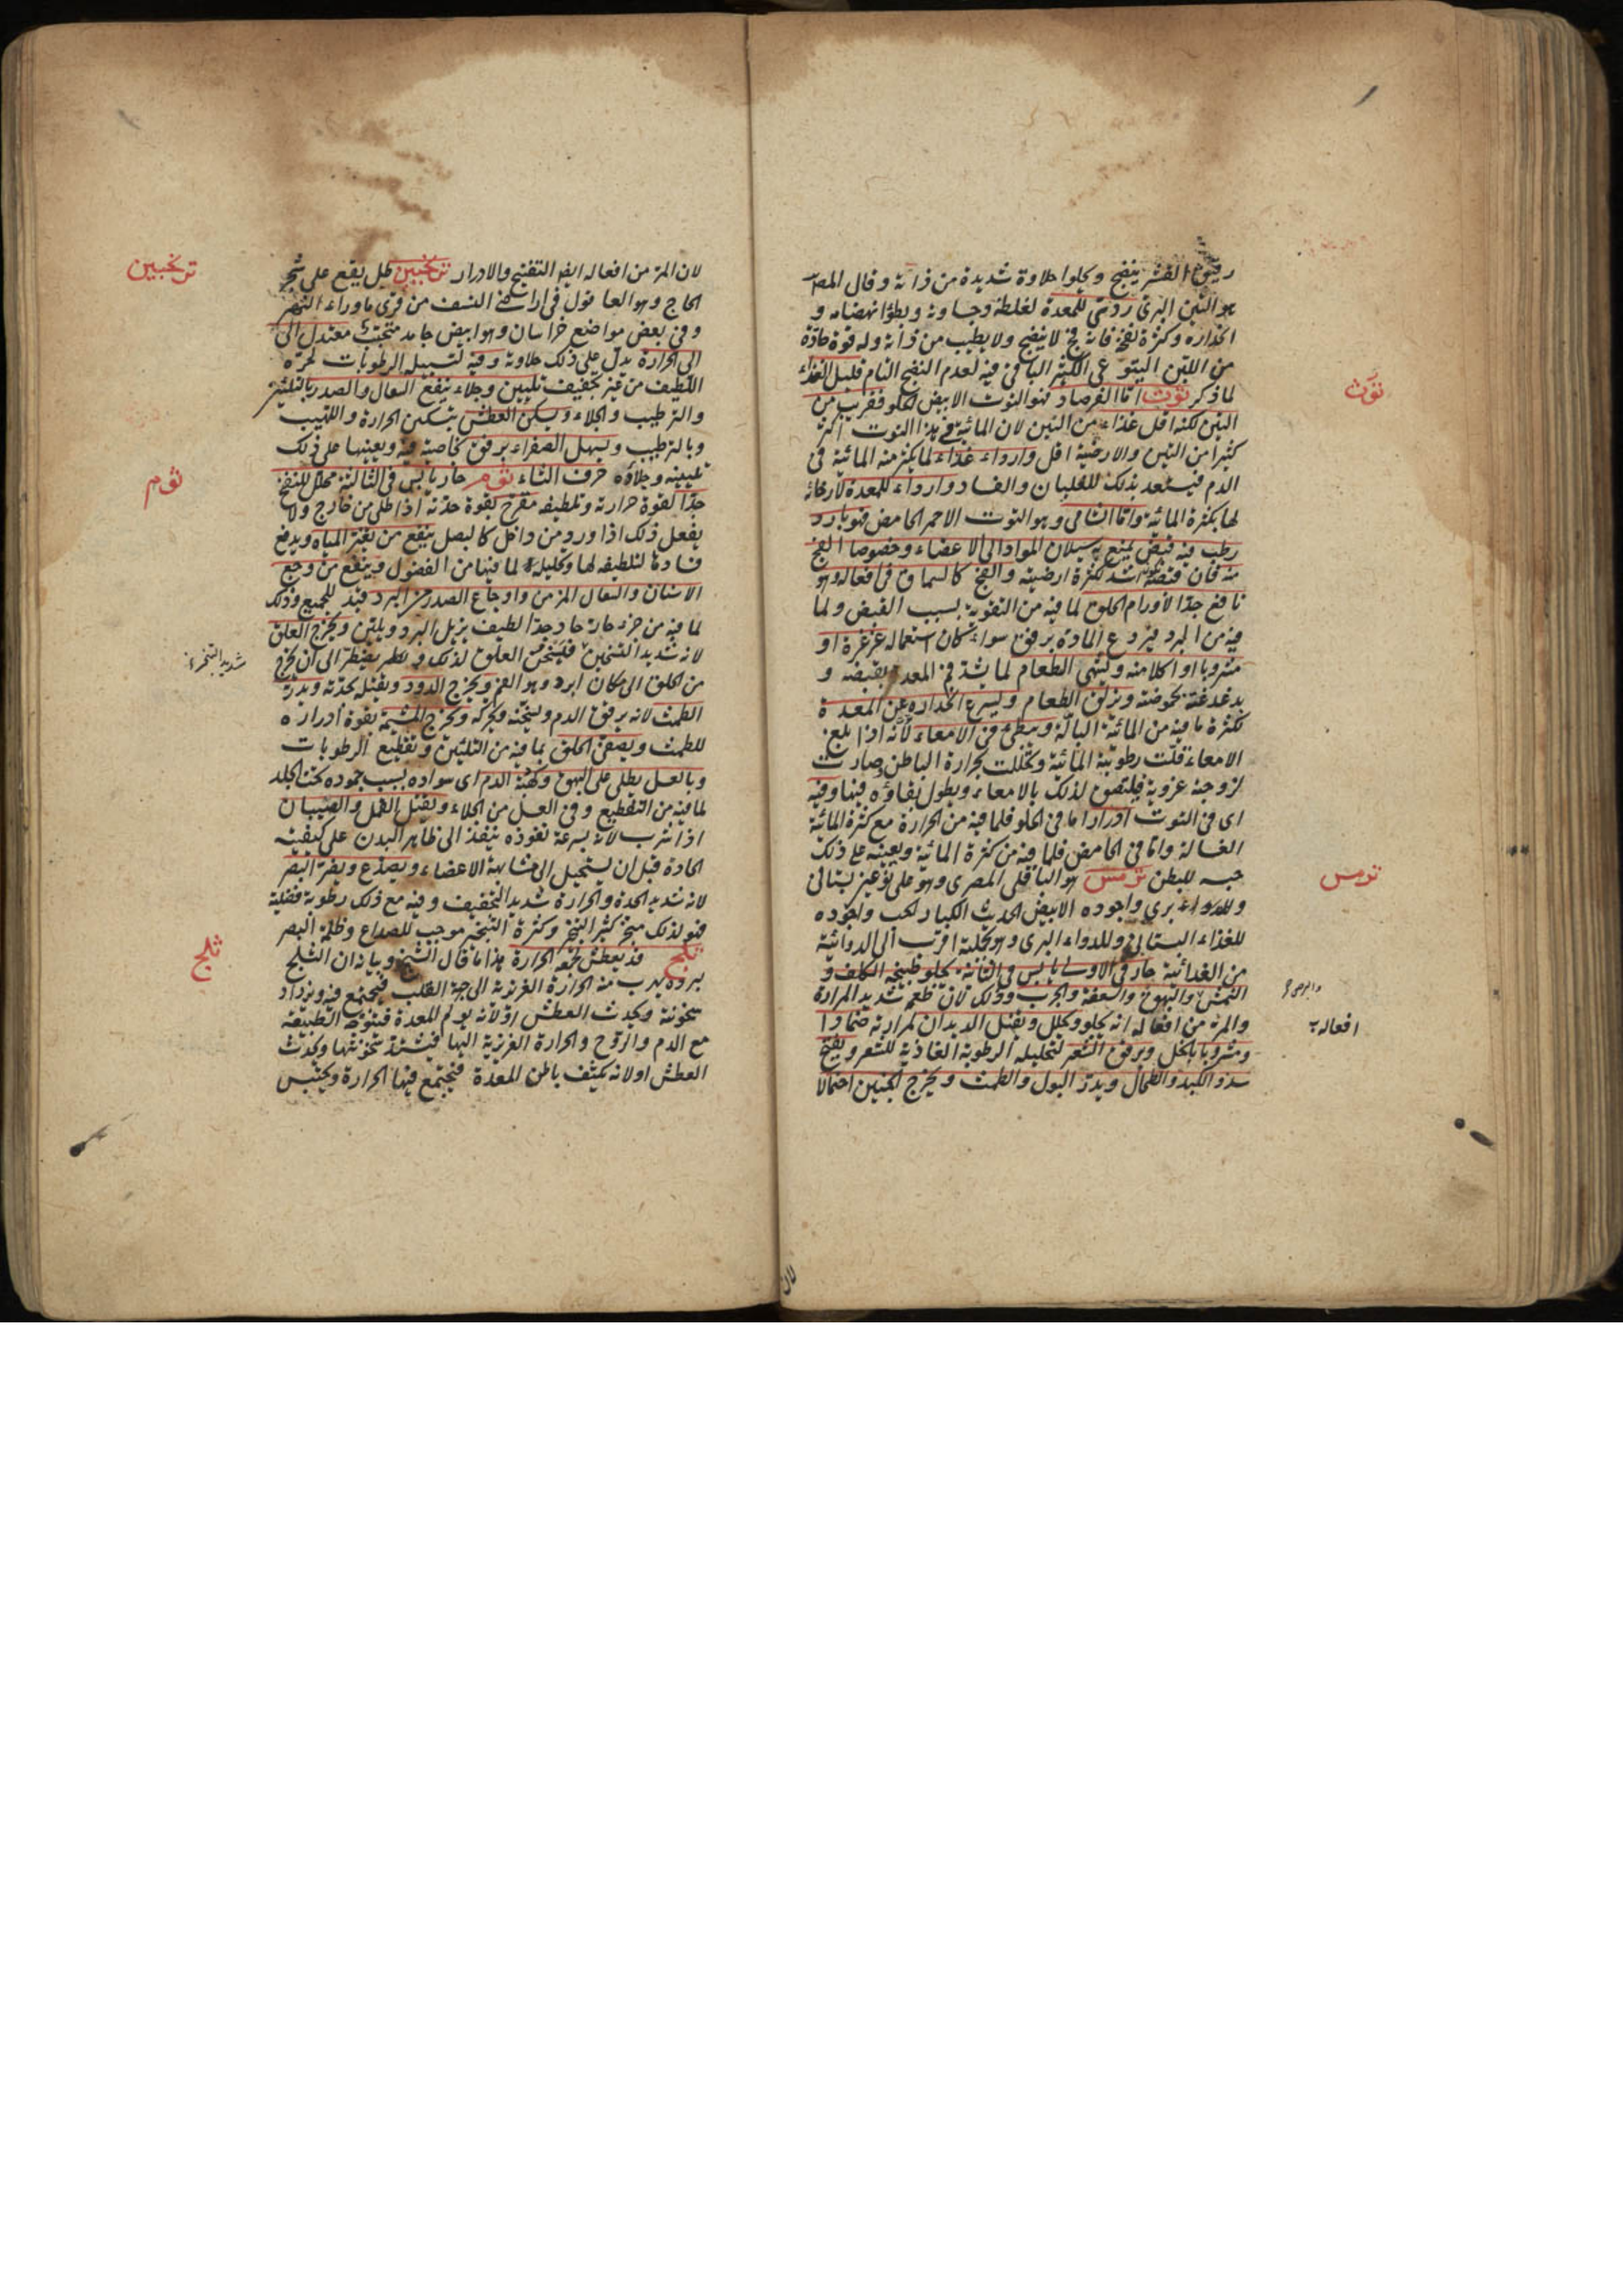 رقيق القشر ينضج ويحلوا حلاوة شديدة من ذاته وقال المص
هو التين البرى ردى للمعدة لغلظه وجساوته وبطؤ انهضامه و
انحداره وكثرة نفخه فانه فج لا ينضج ولا يطيب من ذاته وله قوة حادة
من اللبن اليتوعى الكثير الباقى فيه لعدم النضج التام قليل الغذاء
توث
لما ذكر توث اما الفرصاد فهو التوث الابيض الحلو فقريب من
التين لكنه اقل غذاء من التين لان المائية فى هذا التوت اكثر
كثيرا من التين والارضية اقل واردا غذاء لما يكثر منه المائية فى
الدم فيستعد بذلك للغليان والفساد واردا للمعدة لارخائه
لها بكثرة المائية واما الشامى وهو التوت الاحمر الحامض فهو بارد
رطب فيه قبض يمنع به سيلان المواد الى الاعضاء وخصوصا الفج
منه فان قبضه اشد لكثرة ارضيته والفج كالسماق فى افعاله وهو
نافع جدا لاورام الحلق لما فيه من التقوية بسبب القبض ولما
فيه من البرد فيردع المادة برفق سواء كان استعماله غرغرة او
مشروبا او اكلا منه ويشهى الطعام لما يشد فم المعدة بقبضه و
يدغدغه بحموضته ويزلق الطعام ويسرع انحداره عن المعدة
لكثرة ما فيه من المائية البالة ويبطئ فى الامعاء لانه اذا بلغ
الامعاء قلت رطوبته المائية وتحللت بحرارة الباطن وصارت
لزوجته غروية فيلتصق لذلك بالامعاء ويطول بقاؤه فيها وفيه
اى فى التوت ادرار اما فى الحلو فلما فيه من الحرارة مع كثرة المائية
الغسالة واما فى الحامض فلما فيه من كثرة المائية ويعينه على ذلك
ترمس
حبسه للبطن ترمس هو الباقلى المصرى وهو على نوعين بستانى
وللدواء برى واجوده الابيض الحديث الكبار الحب واجوده
للغذاء البستانى وللدواء البرى وهو بجملته اقرب الى الدوائية
من الغذائية حار فى الاولى يابس فى الثانية يحلو طبيخه الكلف و
النمش والبهق والسعفة والجرب وذلك لان طعمه شديد المرارة
افعاله
والمر من افعاله انه يجلو ويحلل ويقتل الديدان لمرارته ضمادا
ومشروبا بالخل ويرقق الشعر لتحليله الرطوبة الغاذية للشعر ويفتح
سدد الكبد والطحال ويدر البول والطمث ويخرج الجنين احتمالا
لان
ترنجبين
لان المر من افعاله ايضا التفتيح والادرار ترنجبين طل يقع على شجر
الحاج وهو العاقول فى اراضى النسف من قرى ماوراء النهر
وفى بعض مواضع خراسان وهو ابيض جامد متحبب معتدل الى
الى الحرارة يدل على ذلك حلاوته وفيه تسييل الرطوبات لحره
اللطيف من غير تجفيف تليين وجلاء ينفع السعال والصدر بالتليين
والترطيب والجلاء ويسكن العطش بتسكين الحرارة واللهيب
وبالترطيب ويسهل الصفراء برفق بخاصية فيه ويعينها على ذلك
ثوم
تليينه وجلاؤه حرف الثاء ثوم حار يابس فى الثالثة محلل للنفخ
جدا لقوة حرارته وتلطيفه مقرح لقوة حدته اذا طلى من خارج ولا
يفعل ذلك اذا ورد من داخل كالبصل ينفع من تغير المياه ويدفع
فسادها لتلطيفه لها وتحليله لما فيها من الفضول وينفع من وجع
الاسنان والسعال المزمن واوجاع الصدر من البرد قيد للجميع وذلك
لما فيه من جزء حار حاد جدا لطيف يزيل البرد ويلين ويخرج العلق
لانه شديد التسخين فيسخن العلق لذلك و يضطر الى ان يخرج
من الحلق الى مكان ابرد وهو الفم ويخرج الدود ويقتله بحدته ويدر
الطمث لانه يرقق الدم ويسخنه ويحركه ويخرج المشيمة بقوة ادراره
للطمث ويصفى الحلق بما فيه من التليين وتقطيع الرطوبات
وبالعسل يطلى على البهق وكهبة الدم اى سواده بسبب جموده تحت الجلد
لما فيه من التقطيع وفى العسل من الجلاء ويقتل القمل والصيبان
اذا شرب لانه بسرعة نفوذه ينفذ الى ظاهر البدن على كيفيته
الحادة قبل ان يستحيل الى مشابهة الاعضاء ويصدع ويضر البصر
لانه شديد الحدة والحرارة شديد التجفيف وفيه مع ذلك رطوبة فضلية
فهو لذلك مبخر كثير البخر وكثرة التبخر موجب للصداع وظلمة البصر
ثلج
ثلج قد يعطش لجمعه الحرارة هذا ما قال الشيخ وبيانه ان الثلج
ببرده يهرب منه الحرارة الغريزية الى جهة القلب فيجتمع فيه ويزداد
سخونته ويحدث العطش اولانه يولم المعدة فيتوجه الطبيعة
مع الدم والروح والحرارة الغريزية اليها فيشتد سخونتها ويحدث
العطش اولانه يكثف باطن المعدة فيجتمع فيها الحرارة ويحتبس